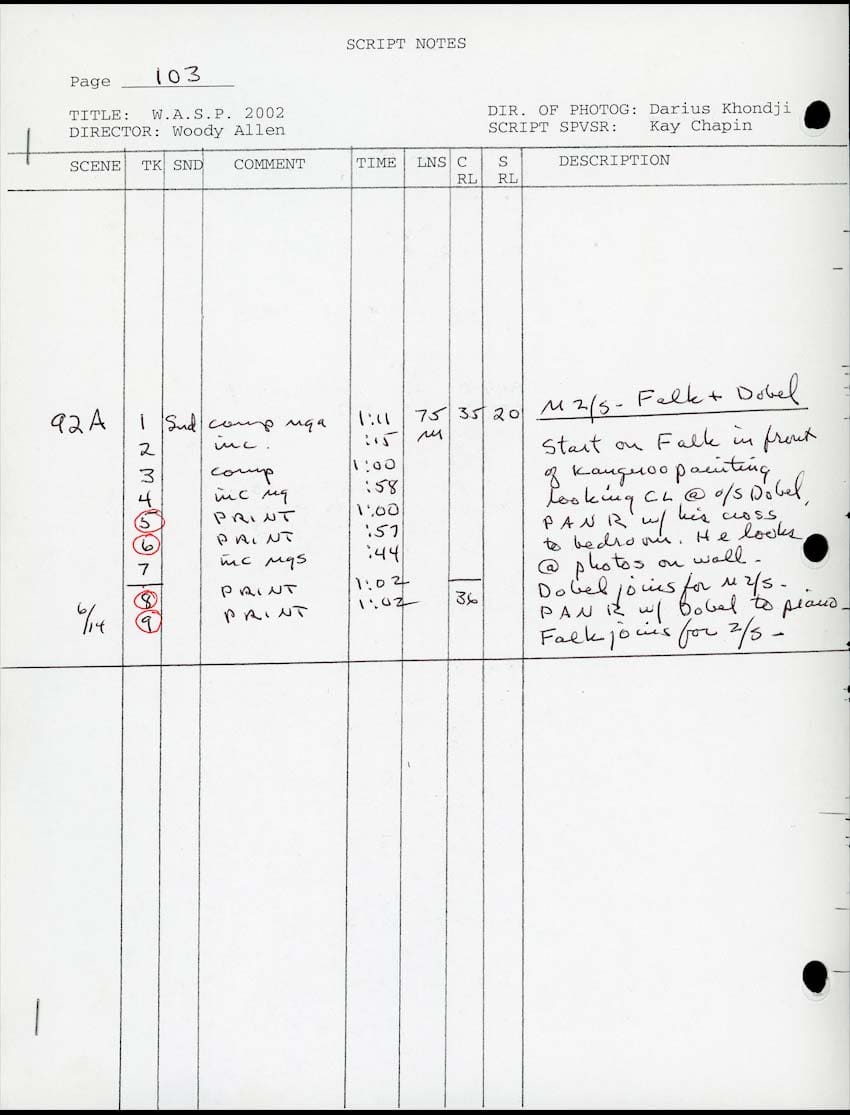 SCRIPT NOTES
Page 103
TITLE: W.A.S.P. 2002 DIR. OF PHOTOG: Darius Khondji
DIRECTOR: Woody Allen SCRIPT SPVSR: Kay Chapin
SCENE TK SND COMMENT TIME LNS C RL S RL DESCRIPTION
92A 1 Snd comp 1:11 75 35 20 M 2/S - Falk + Dobel
2 inc. :15 M Start on Falk in front
3 comp 1:00 of Kangaroo painting
4 inc :58 looking CL @ o/s Dobel,
5 PRINT 1:00 PAN R w/ his cross
6 PRINT :57 to bedroom. He looks
7 inc :44 @ photos on wall -
8 PRINT 1:02 36 Dobel joins for M 2/S -
6/14 9 PRINT 1:02 PAN R w/ Dobel to piano -
Falk joins for 2/S -